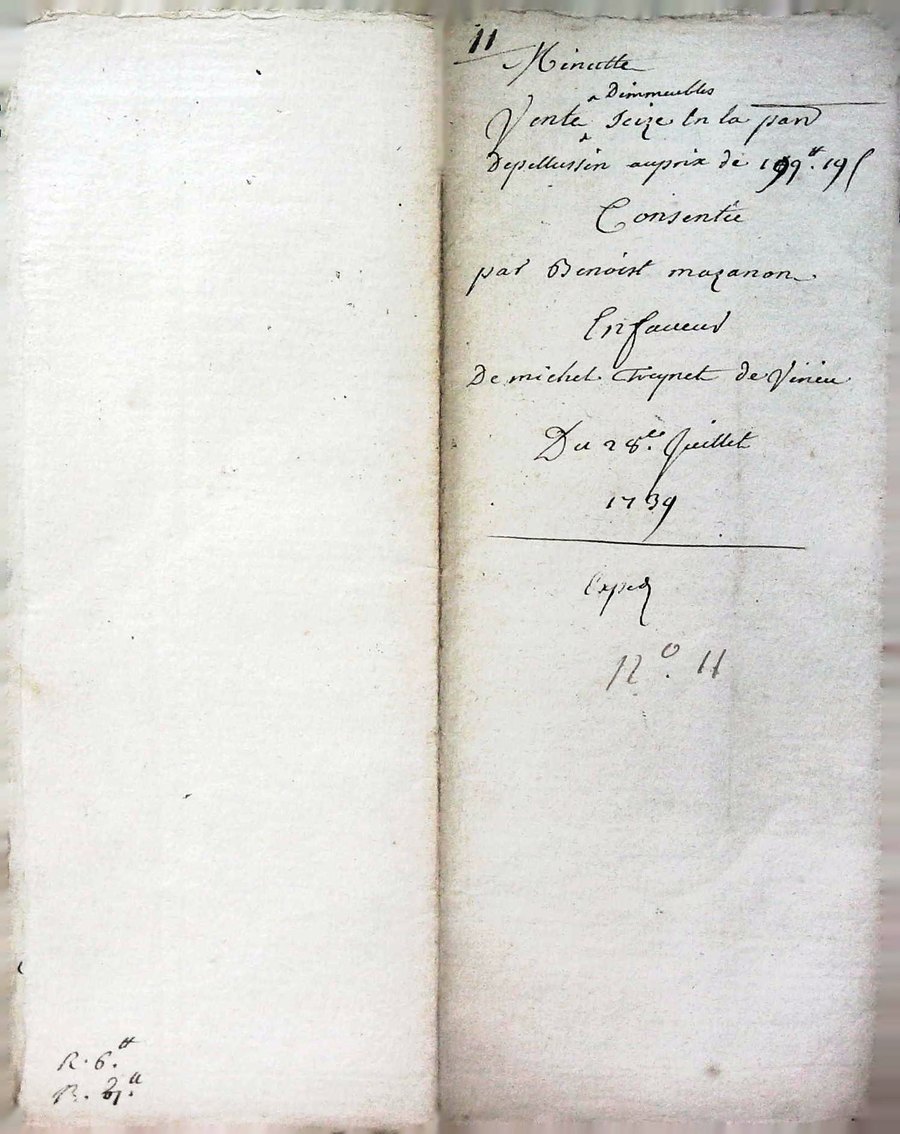 11
Minutte
Dimmeubles
Vente seize En la parr
Depellussin auprix de 199tt. 19s
Consentie
par Benoist mazanon
En faveur
De michel Freynet de Virieu
Du 28e. Juillet
1739
Exped
No. 11
R. 6.tt
B.